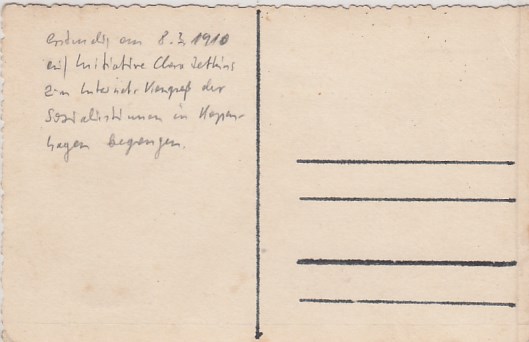 erstmalig am 8.3.1910
auf Initiative Clara Zetkins
zum Internat. Kongreß der
Sozialistinnen in Kopen-
hagen begangen.